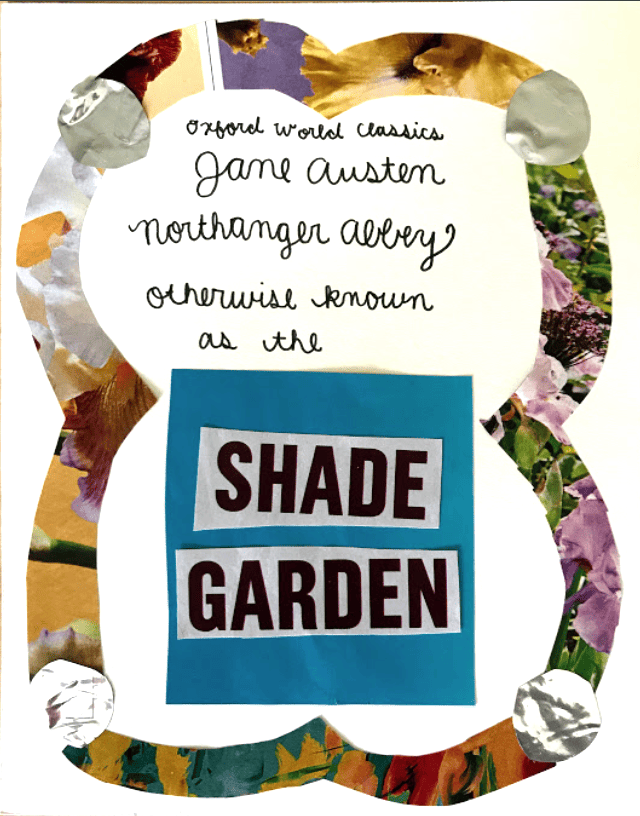 oxford world classics
Jane Austen
Northanger Abbey
otherwise known
as the
SHADE
GARDEN